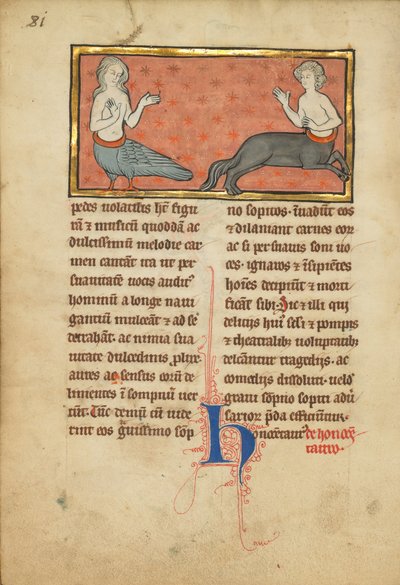 81
pedes uolatilis hn̄t figu
rā & musicū quoddā ac
dulcissimū melodie car
men cantāt ita ut per
suauitatē uocis audit'
hominū a longe naui
gantiū mulceāt & ad se
detrahāt. ac nimia sua
uitate dulcedinis
aures ac sensus eorū de
linientes ī sompniū uer
tūt. Tūc demū cū uide
rint eos g̃uissimo sop
no sopitos. inuadūt eos
& dilaniant carnes eor
ac si persuasis soni uo
ces. ignauos & īsipiētes
hoīes decipiūt & morti
ficāt sibi. Sic & illi qui
deliciis hui' scl̄i & pompis
& theatralib; uoluptatib;
tragediis. ac
comediis dissoluti. uel
graui sopno sopiti adū
sarior p̄da efficiuntur.
Honocentaur' de honocen
tauro.